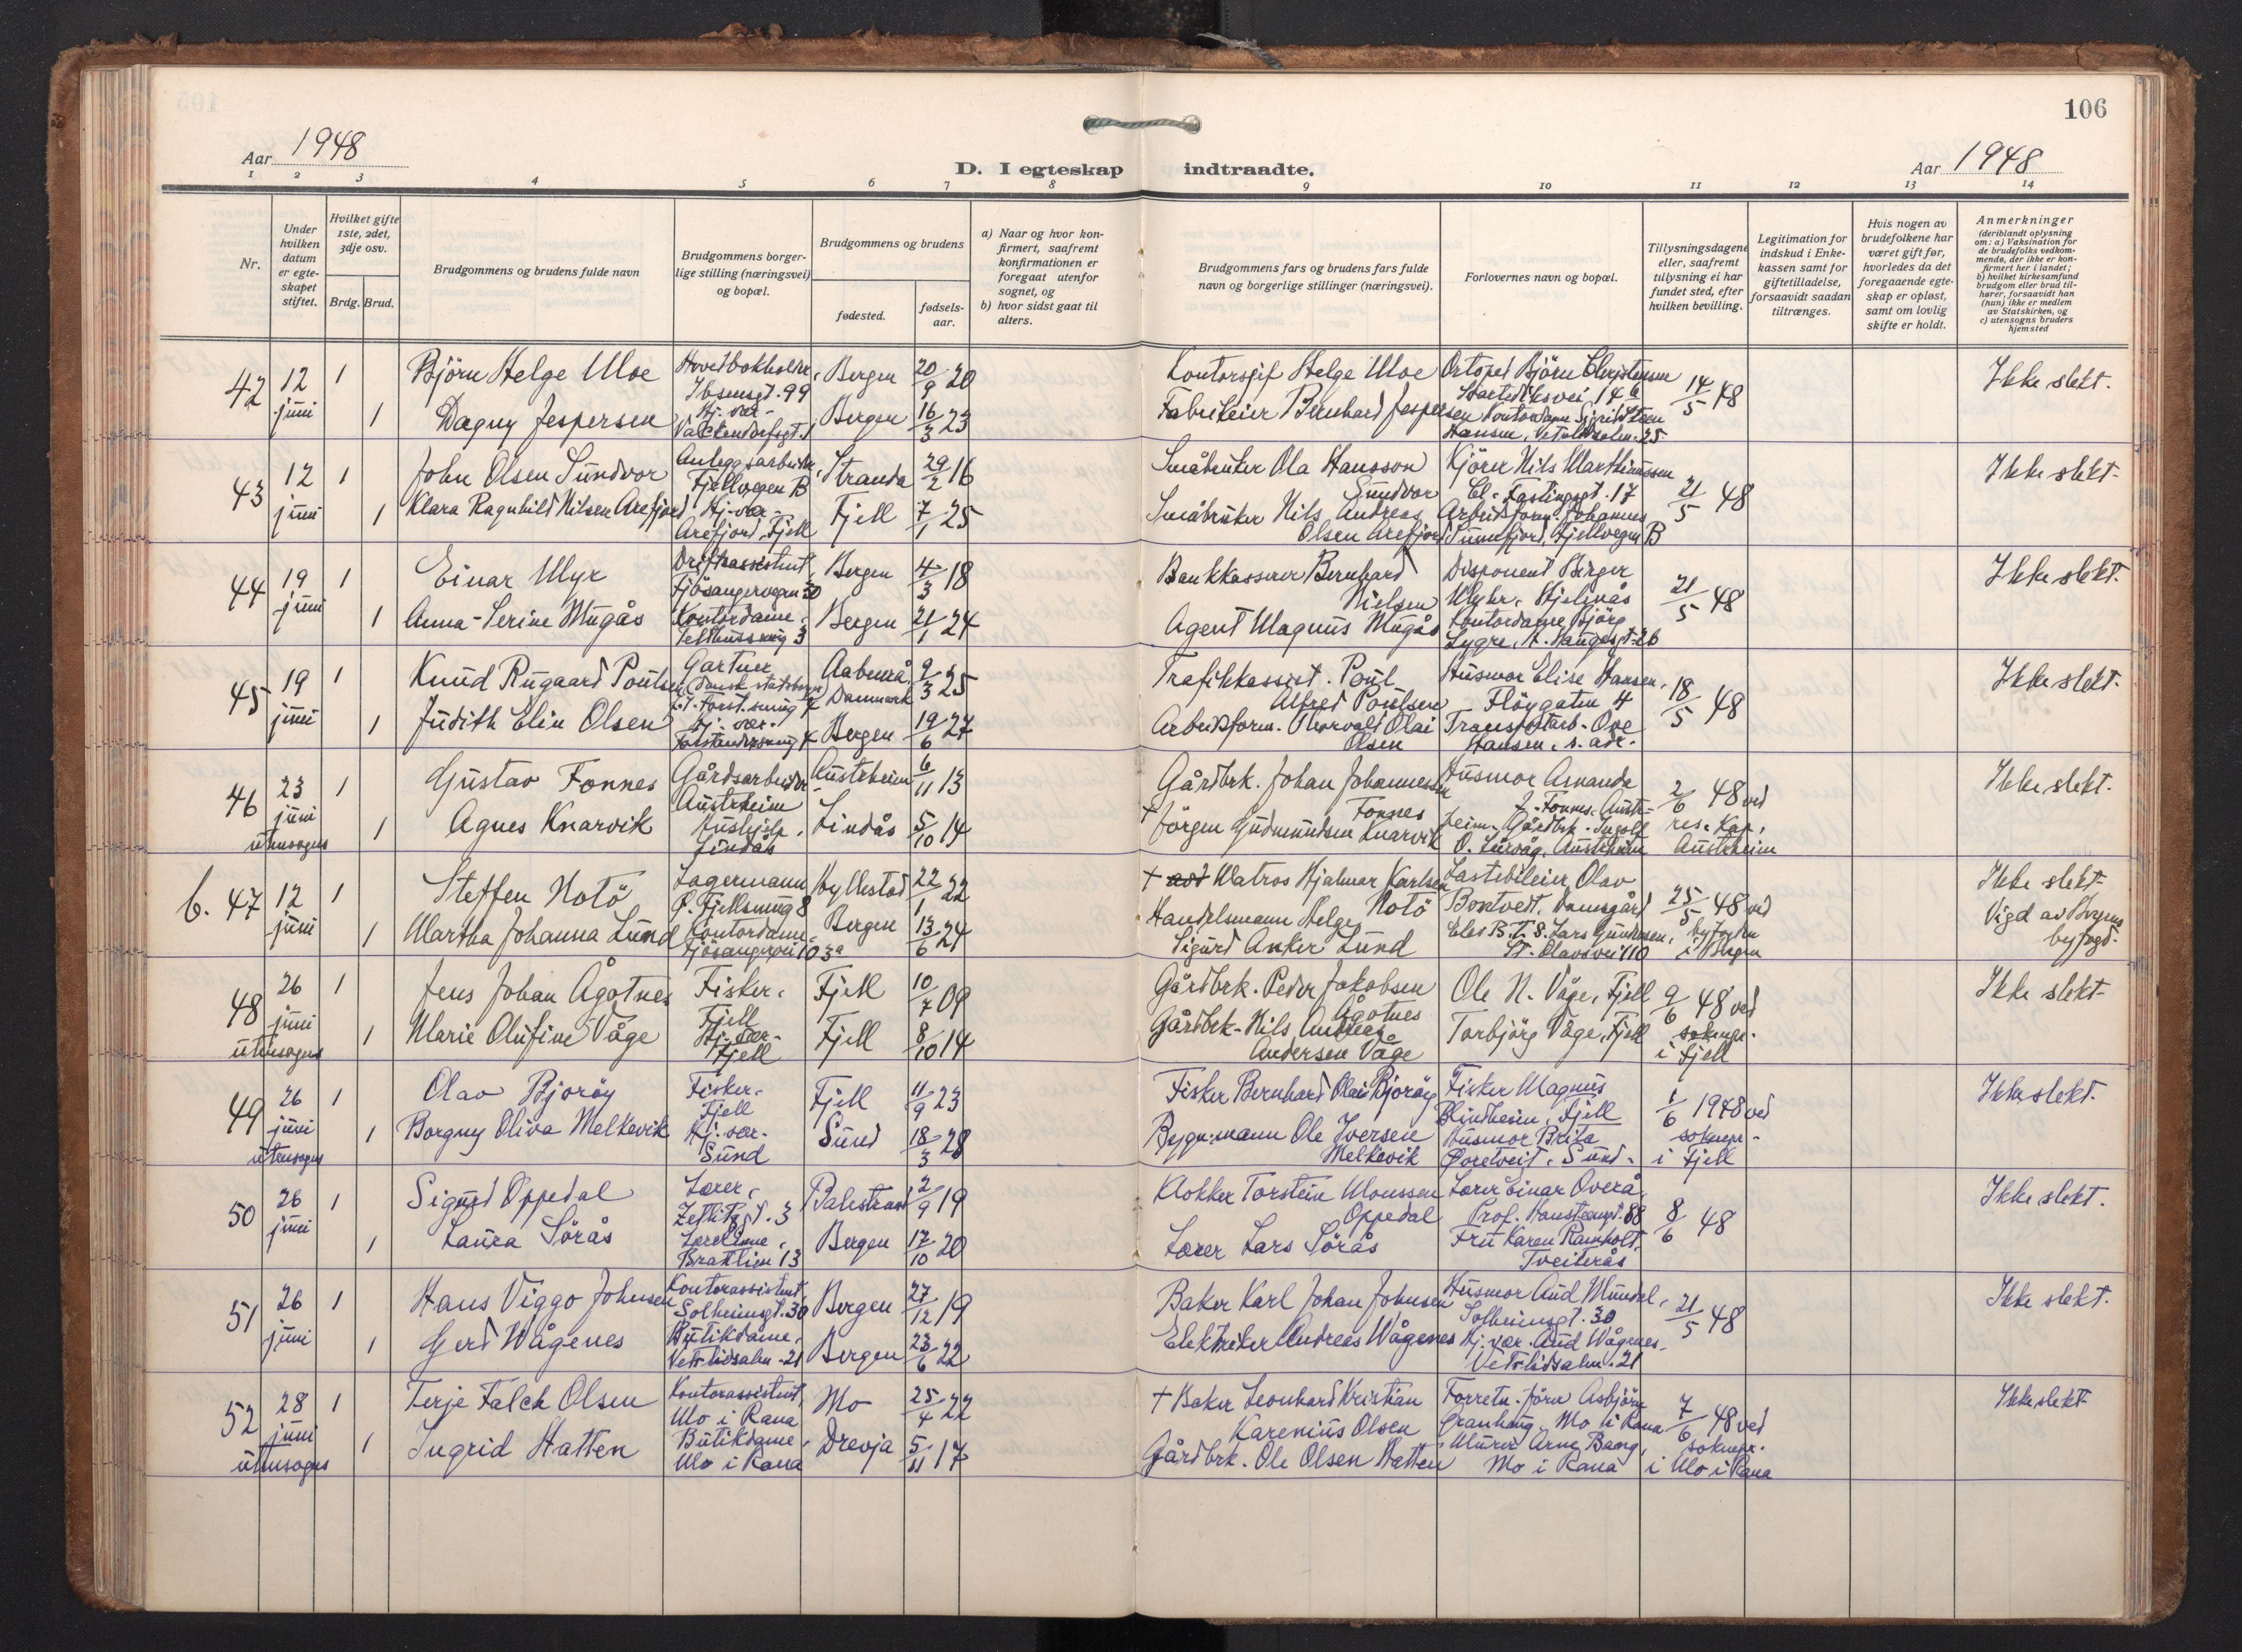 106
Aar 1948
D. I egteskap indtraadte.
Aar 1948
1 2 3 4 5 6 7 8 9 10 11 12 13 14
Nr.
Under hvilken datum er egteskapet stiftet.
Hvilket gifte 1ste, 2det, 3dje osv.
Brdg. Brud.
Brudgommens og brudens fulde navn
Brudgommens borgerlige stilling (næringsvei) og bopæl.
Brudgommens og brudens
fødested.
fødselsaar.
a) Naar og hvor konfirmert, saafremt konfirmationen er foregaat utenfor sognet, og
b) hvor sidst gaat til alters.
Brudgommens fars og brudens fars fulde navn og borgerlige stillinger (næringsvei).
Forlovernes navn og bopæl.
Tillysningsdagene eller, saafremt tillysning ei har fundet sted, efter hvilken bevilling.
Legitimation for indskud i Enkekassen samt for giftetilladelse, forsaavidt saadan tiltrænges.
Hvis nogen av brudefolkene har været gift før, hvorledes da det foregaaende egteskap er opløst, samt om lovlig skifte er holdt.
Anmerkninger (deriblandt oplysning om: a) Vaksination for de brudefolks vedkommende, der ikke er konfirmert her i landet; b) hvilket kirkesamfund brudgom eller brud tilhører, forsaavidt han (hun) ikke er medlem av Statskirken, og c) utensogns bruders hjemsted
42 12 juni 1 Björn Helge Moe Hovedbokholder, Ibsensgt. 99 Bergen 20/9 20 Kontorsjef Helge Moe Ortoped Björn Christensen 14/5 48 Ikke slekt.
1 Dagny Jespersen Hj. vær. Valckendorfsgt. Bergen 16/3 23 Fabrikeier Bernhard Jespersen Kontordame Sigrid Steen Hansen, 25
43 12 juni 1 John Olsen Sundvor Anleggsarbeider, Fjellvegen B Stranda 29/2 16 Småbruker Ola Hansson Sundvor Kjörer Nils Marthinussen Cl. Fastingsgt. 17 21/5 48 Ikke slekt.
1 Klara Ragnhild Nilsen Arefjord Hj. vær. Arefjord, Fjell Fjell 7/1 25 Småbruker Nils Andreas Olsen Arefjord Arbeidsform. Johannes Sunnfjord, Fjellvegen B
44 19 juni 1 Einar Myr Driftsassistent, Fjösangervegen 30 Bergen 4/3 18 Bankkasserer Bernhard Nielsen Disponent Birger Myhr, Hjelnås 21/5 48 Ikke slekt.
1 Anna-Serine Mugås Kontordame, 3 Bergen 21/1 24 Agent Magnus Mugås Kontordame Björg Lygre, H. Haugesgt. 26
45 19 juni 1 Knud Rugaard Poulsen Gartner (dansk statsborger) 4 Aabenrå, Danmark 9/3 25 Trafikkassist. Poul Alfred Poulsen Husmor Elise Hansen, Flöygaten 4 18/5 48 Ikke slekt.
1 Judith Elin Olsen Hj. vær. 4 Bergen 19/6 27 Arbeidsform. Thorvald Olai Olsen Transportarb. Ove Hansen, s. adr.
46 23 juni utensogns 1 Gustav Fonnes Gårdsarbeider Austrheim Austrheim 6/11 13 Gårdbrk. Johan Johannessen Fonnes Husmor Amanda J. Fonnes, Austrheim, 2/6 48 ved res. Kap. Austrheim Ikke slekt.
1 Agnes Knarvik Hushjelp, Lindås Lindås 5/10 14 † Jörgen Gudmundsen Knarvik Gårdbrk. Ingolf O. Lurvåg, Austrheim
b. 47 12 juni 1 Steffen Notö Lagermann Ø. Fjellsmug 8 Hyllestad 22/1 22 † Matros Hjalmar Karlsen Notö Lastebileier Olav Bontvedt, Damsgård 25/5 48 ved byfogden i Bergen Ikke slekt. Vigd av Bergens byfogd.
1 Martha Johanna Lund Kontordame Fjösangervei 103a Bergen 13/6 24 Handelsmann Helge Sigurd Anker Lund Elev B.T.S. Lars Gundersen, St. Olavsvei 110
48 26 juni utensogns 1 Jens Johan Ågotnes Fisker, Fjell Fjell 10/7 09 Gårdbrk. Peder Jakobsen Ågotnes Ole N. Våge, Fjell 9/6 48 ved soknepr. i Fjell Ikke slekt.
1 Marie Olufine Våge Hj. vær. Fjell Fjell 8/10 14 Gårdbrk. Nils Andreas Andersen Våge Torbjörg Våge, Fjell
49 26 juni utensogns 1 Olav Bjoröy Fisker. Fjell Fjell 11/9 23 Fisker Bernhard Olai Bjoröy Fisker Magnus Blindheim, Fjell 1/6 1948 ved soknepr. i Fjell Ikke slekt.
1 Borgny Oliva Melkevik Hj. vær. Sund Sund 18/3 28 Bygn.mann Ole Iversen Melkevik Husmor Brita Øvretveit, Sund.
50 26 juni 1 Sigurd Oppedal Lærer, Zetlitzgt. 3 Balestrand 2/9 19 Klokker Torstein Monssen Oppedal Lærer Einar Overå, Prof. Hansteensgt. 88 8/6 48 Ikke slekt.
1 Laura Sörås Lærerinne, Brattlien 13 Bergen 17/10 20 Lærer Lars Sörås Fru Karen Ramholt, Tveiterås
51 26 juni 1 Hans Viggo Johnsen Kontorassistent, Solheimsgt. 30 Bergen 27/12 19 Baker Karl Johan Johnsen Husmor Aud Mundal, Solheimsgt. 30 21/5 48 Ikke slekt.
1 Gerd Wågenes Butikdame, Vetrlidsalm. 21 Bergen 23/6 22 Elektriker Andreas Wågenes Hj. vær. Aud Wågenes. Vetrlidsalm. 21
52 28 juni utensogns 1 Terje Falch Olsen Kontorassistent, Mo i Rana Mo 25/4 22 † Baker Leonhard Kristian Karenius Olsen Forretn. förer Asbjörn Granhaug, Mo i Rana 7/6 48 ved soknepr. i Mo i Rana Ikke slekt
1 Ingrid Hatten Butikdame, Mo i Rana Drevja 5/11 17 Gårdbrk. Ole Olsen Hatten Murer Arne Bang, Mo i Rana